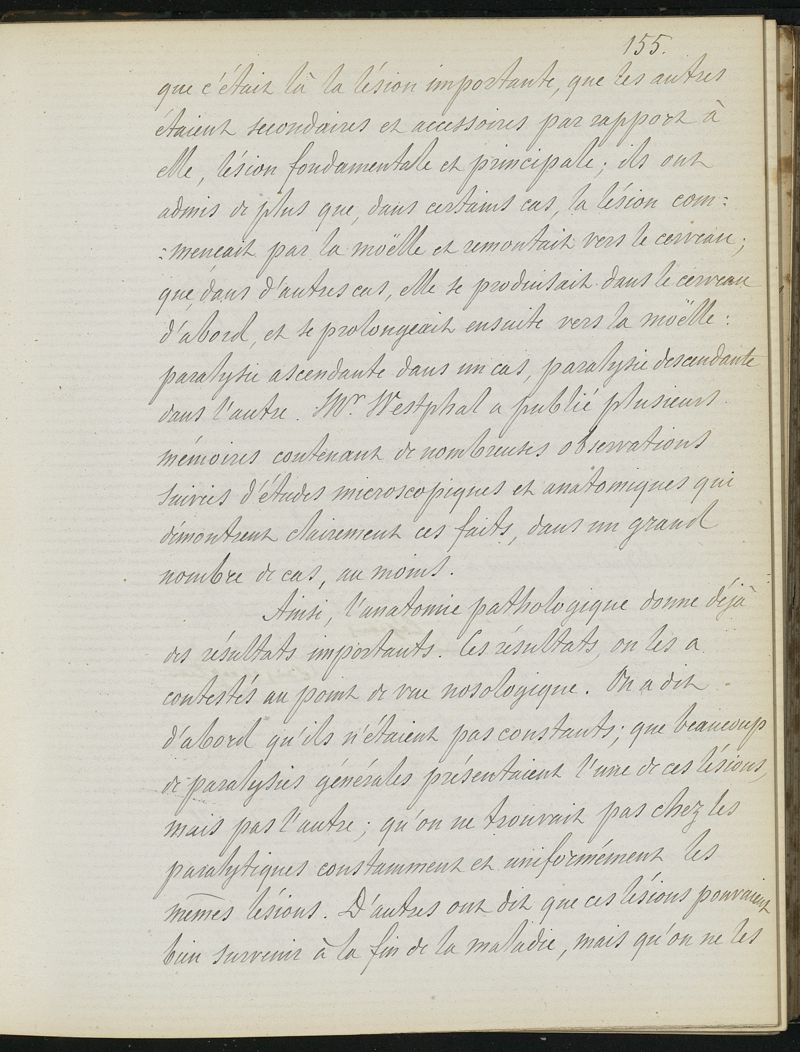 155.
que c'était là la lésion importante, que les autres
étaient secondaires et accessoires par rapport à
elle, lésion fondamentale et principale; ils ont
admis de plus que, dans certains cas, la lésion com=
=mencait par la moëlle et remontait vers le cerveau;
que, dans d'autres cas, elle se produisait dans le cerveau
d'abord, et se prolongeait ensuite vers la moëlle:
paralysie ascendante dans un cas, paralysie descendante
dans l'autre. Mr. Westphal a publié plusieurs
mémoires contenant de nombreuses observations
suivies d'études microscopiques et anatomiques qui
démontrent clairement ces faits, dans un grand
nombre de cas, au moins.
Ainsi, l'anatomie pathologique donne déjà
des résultats importants. Ces résultats, on les a
contestés au point de vue nosologique. On a dit
d'abord qu'ils n'étaient pas constants; que beaucoup
de paralysies générales présentaient l'une de ces lésions,
mais pas l'autre; qu'on ne trouvait pas chez les
paralytiques constamment et uniformément les
mêmes lésions. D'autres ont dit que ces lésions pouvaient
bien survenir à la fin de la maladie, mais qu'on ne les